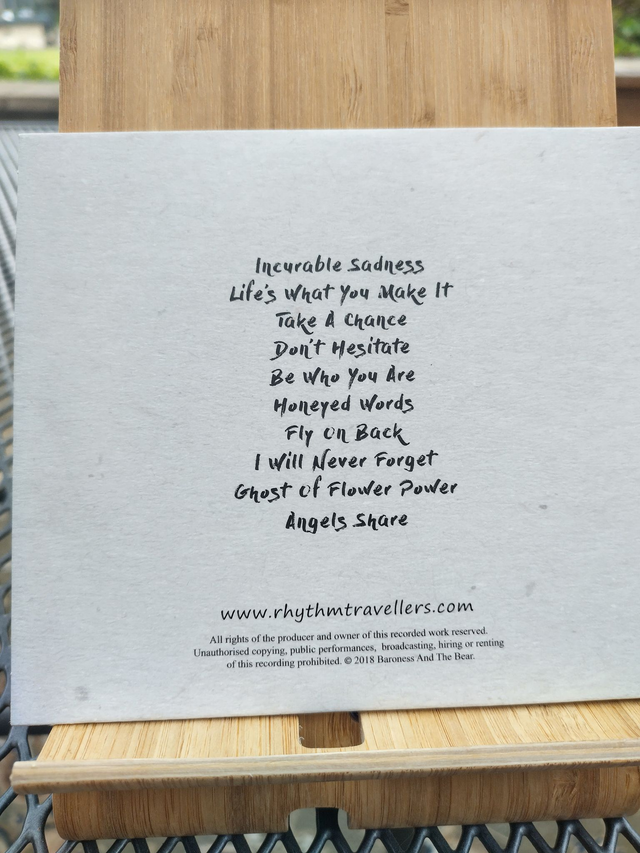 Incurable Sadness
Life's What You Make It
Take A Chance
Don't Hesitate
Be Who You Are
Honeyed Words
Fly On Back
I Will Never Forget
Ghost Of Flower Power
Angels Share
www.rhythmtravellers.com
All rights of the producer and owner of this recorded work reserved.
Unauthorised copying, public performances, broadcasting, hiring or renting
of this recording prohibited. © 2018 Baroness And The Bear.